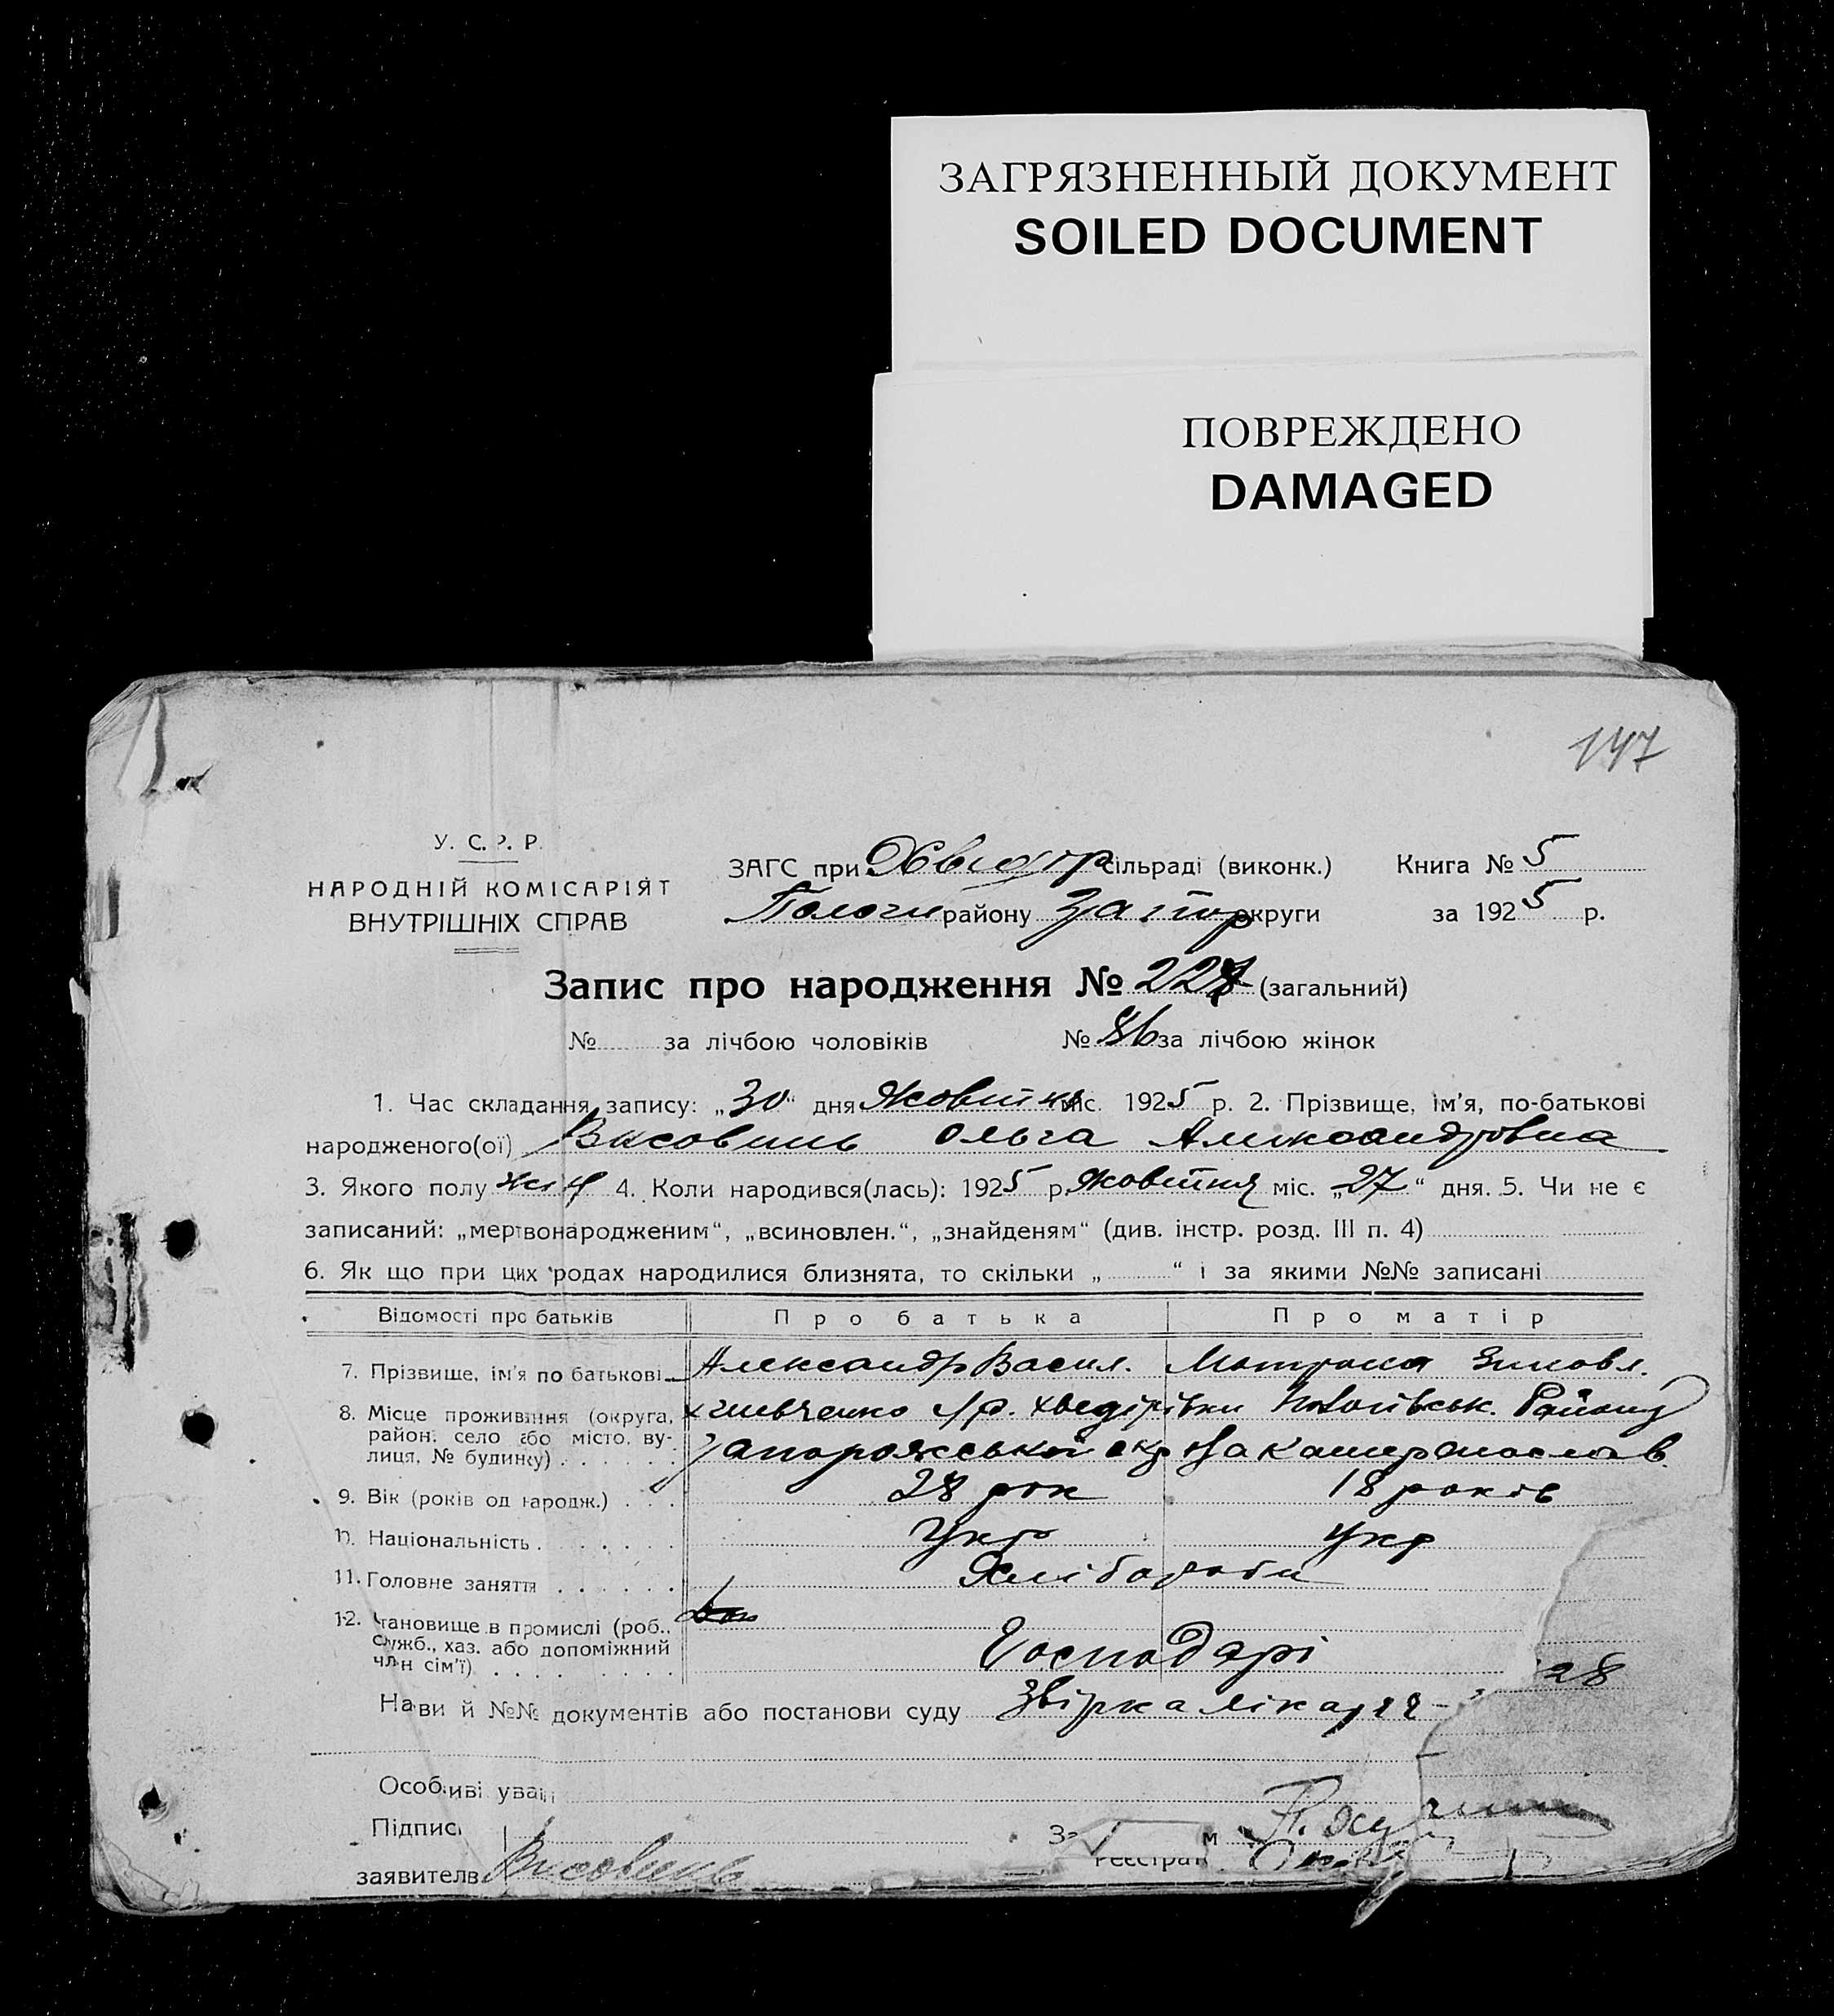 ЗАГРЯЗНЕННЫЙ ДОКУМЕНТ
SOILED DOCUMENT
ПОВРЕЖДЕНО
DAMAGED
147
У. С. Р. Р.
НАРОДНІЙ КОМІСАРІЯТ
ВНУТРІШНІХ СПРАВ
ЗАГС при Хведор сільраді (виконк.) Книга № 5
Пологи району Запор округи за 1925 р.
Запис про народження № 227 (загальний)
№ за лічбою чоловіків № 86 за лічбою жінок
1. Час складання запису: „30“ дня Жовтня міс. 1925 р. 2. Прізвище, ім’я, по-батькові
народженого(ої) Висовинь Ольга Александровна
3. Якого полу жін 4. Коли народився(лась): 1925 р. Жовтня міс. „27“ дня. 5. Чи не є
записаний: „мертвонародженим“, „всиновлен.“, „знайденям“ (див. інстр. розд. III п. 4)
6. Як що при цих родах народилися близнята, то скільки „ “ і за якими №№ записані
Відомості про батьків Про батька Про матір
7. Прізвище, ім’я по батькові Александр Васил. Мотрона Зиновл.
8. Місце проживання (округа, район, село або місто, вулиця, № будинку) Хведірівки Району
Запорожської окр
9. Вік (років од народж.) 28 рок 18 років
10. Національність Укр Укр
11. Головне заняття Хлібороби
12. Становище в промислі (роб., служб., хаз. або допоміжний член сім’ї) Господарі
Назви й №№ документів або постанови суду Звірка лікаря 28
Особливі уваги
Підпис
заявителв Висовинь
Реєстрат